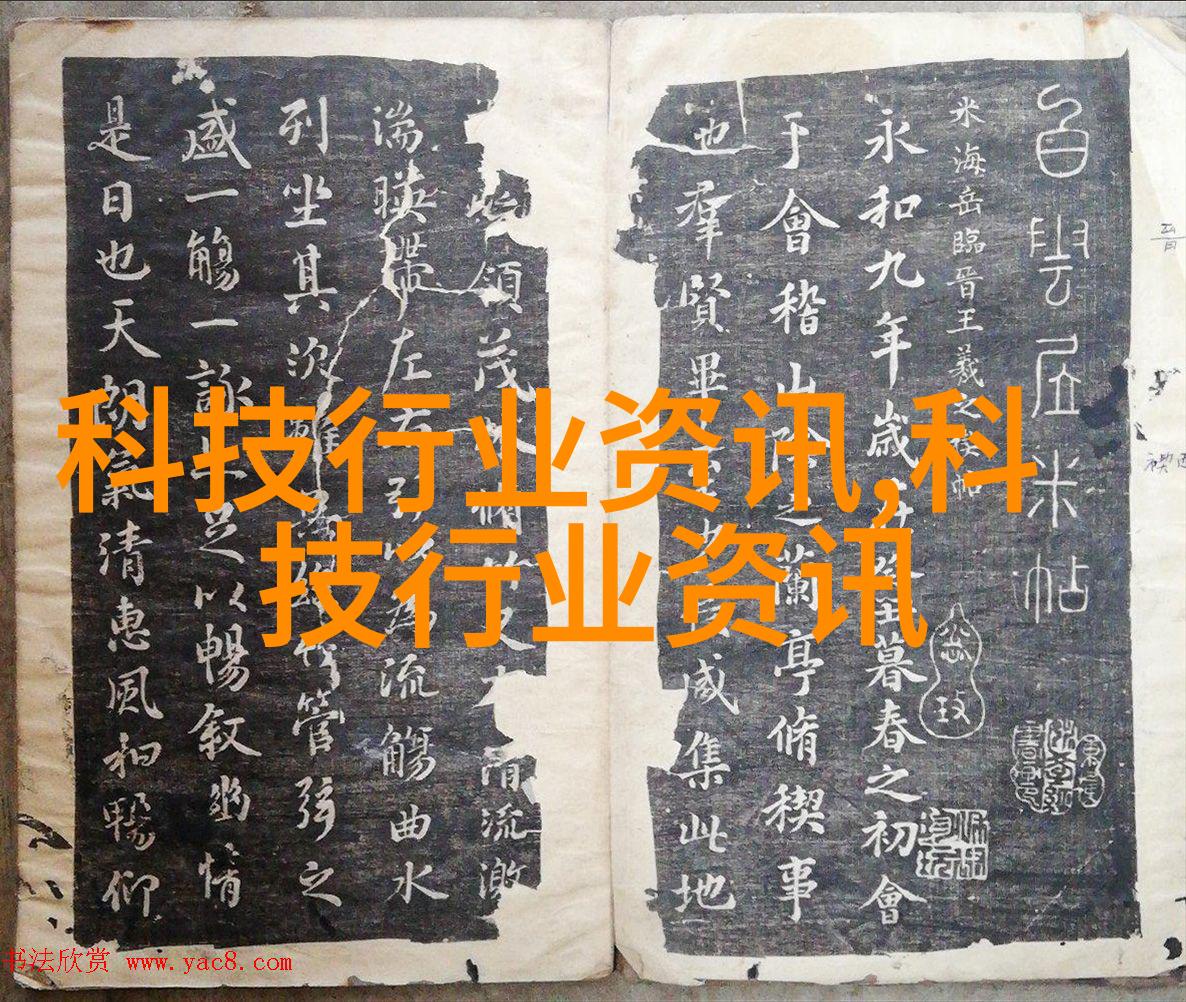 白雲居米帖
米海岳臨晉王羲之禊帖
永和九年歲暮春之初會
于會稽山陰之蘭亭脩稧事
也羣賢畢咸集此地
領茂脩竹又有清流激
湍暎帶左右引以為流觴曲水
列坐其次雖管弦之
盛一觴一詠足以暢敘幽情
是日也天朗氣清惠風和暢仰
科技行业资讯,科
技行业资讯
书法欣赏 www.yac8.com